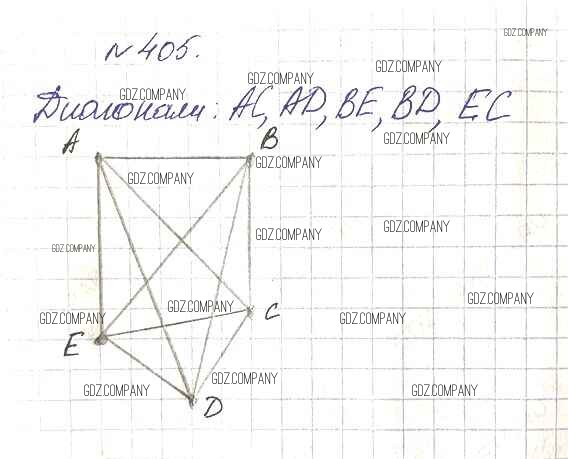 GDZ.COMPANY
№405.
GDZ.COMPANY
GDZ.COMPANY
GDZ.COMPANY
Диагонали: AC, AD, BE, BD, EC
GDZ.COMPANY
A
B
GDZ.COMPANY
GDZ.COMPANY
GDZ.COMPANY
GDZ.COMPANY
GDZ.COMPANY
GDZ.COMPANY
GDZ.COMPANY
C
GDZ.COMPANY
GDZ.COMPANY
E
GDZ.COMPANY
GDZ.COMPANY
GDZ.COMPANY
D